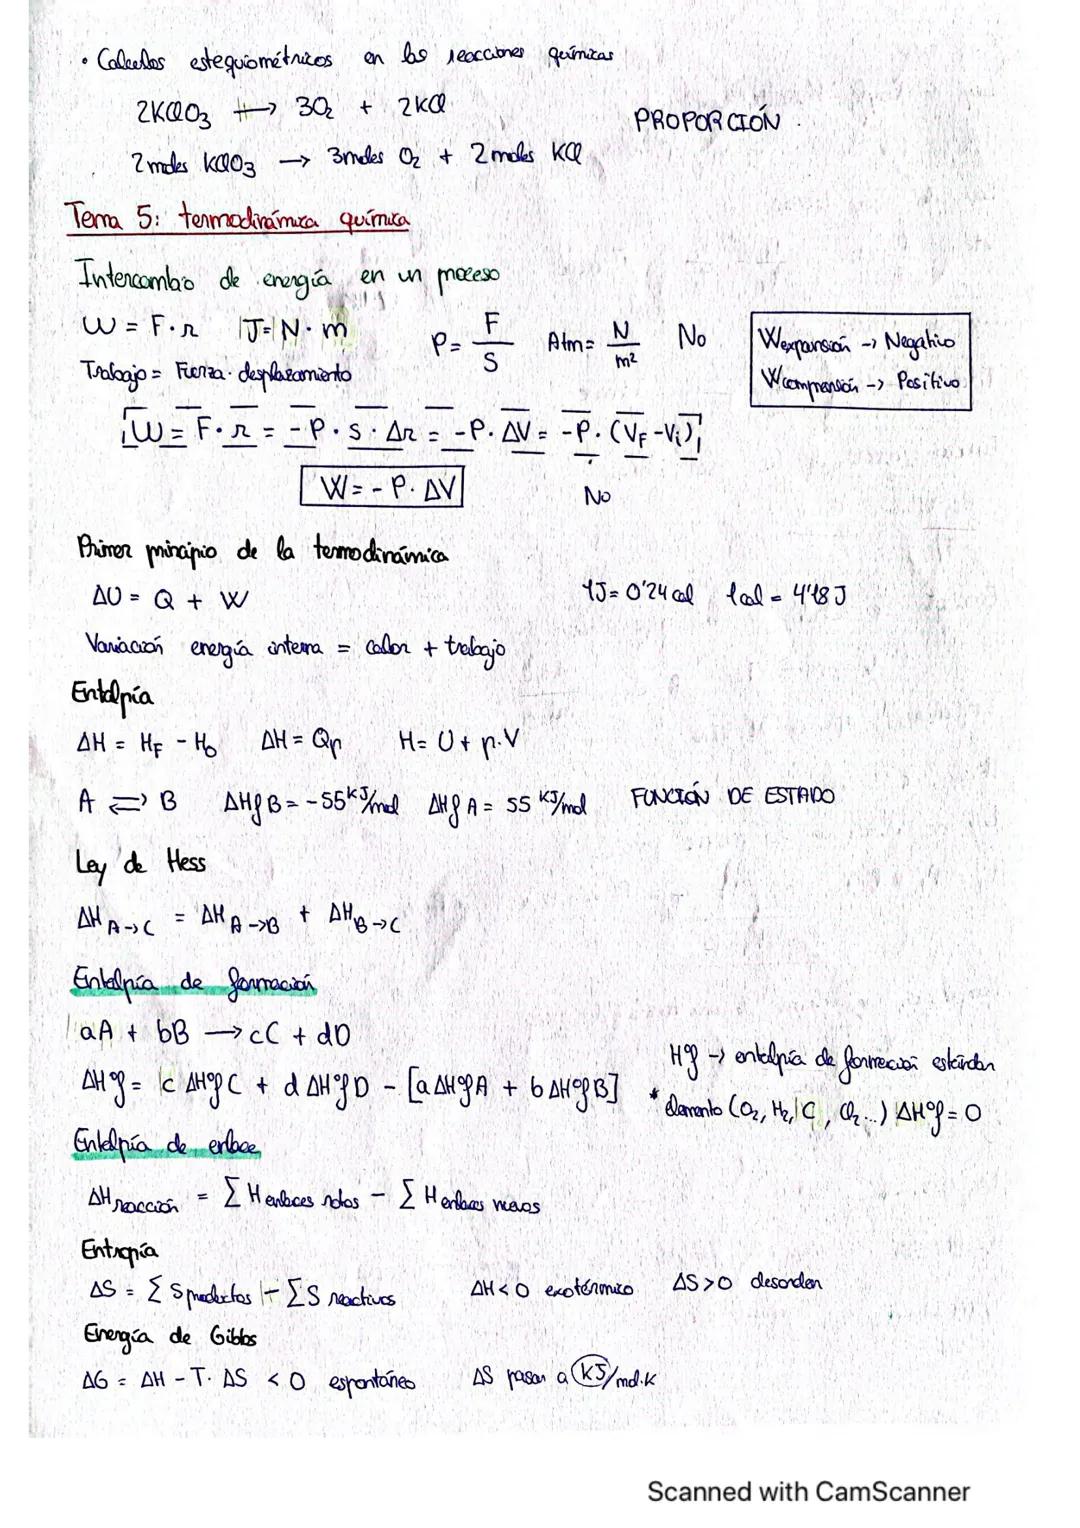 • Calculos estequiométricos en las reacciones químicas
2KClO3 → 3O2 + 2KCl
PROPORCIÓN.
2 moles KClO3 → 3 moles O2 + 2 moles KCl
Tema 5: termodinámica química
Intercambio de energía en un proceso
W = F·r J = N·m P = F/S Atm = N/m² No
Wexpansión -> Negativo
Trabajo = Fuerza · desplazamiento
Wcompresión -> Positivo
W = F·r = -P·s·Δr = -P·ΔV = -P·(VF-Vi)
W = -P·ΔV
No
Primer principio de la termodinámica
ΔU = Q + W 1J = 0'24 cal 1cal = 4'18 J
Variación energía interna = calor + trabajo
Entalpía
ΔH = HF - H0 ΔH = Qp H = U + p.V
A ⇄ B ΔHf B = -55 kJ/mol ΔHf A = 55 kJ/mol FUNCIÓN DE ESTADO
Ley de Hess
ΔH A->C = ΔH A->B + ΔH B->C
Entalpía de formación
aA + bB → cC + dD
Hºf -> entalpía de formación estándar
ΔHºf = c ΔHºf C + d ΔHºf D - [a ΔHºf A + b ΔHºf B]
* elemento (O2, H2, C, Cl2...) ΔHºf = 0
Entalpía de enlace
ΔH reacción = Σ H enlaces rotos - Σ H enlaces
Entropía
ΔS = Σ S productos - Σ S reactivos ΔH < 0 exotérmico ΔS > 0 desorden
Energía de Gibbs
ΔG = ΔH - T·ΔS < 0 espontáneo ΔS pasar a kJ/mol.K
Scanned with CamScanner